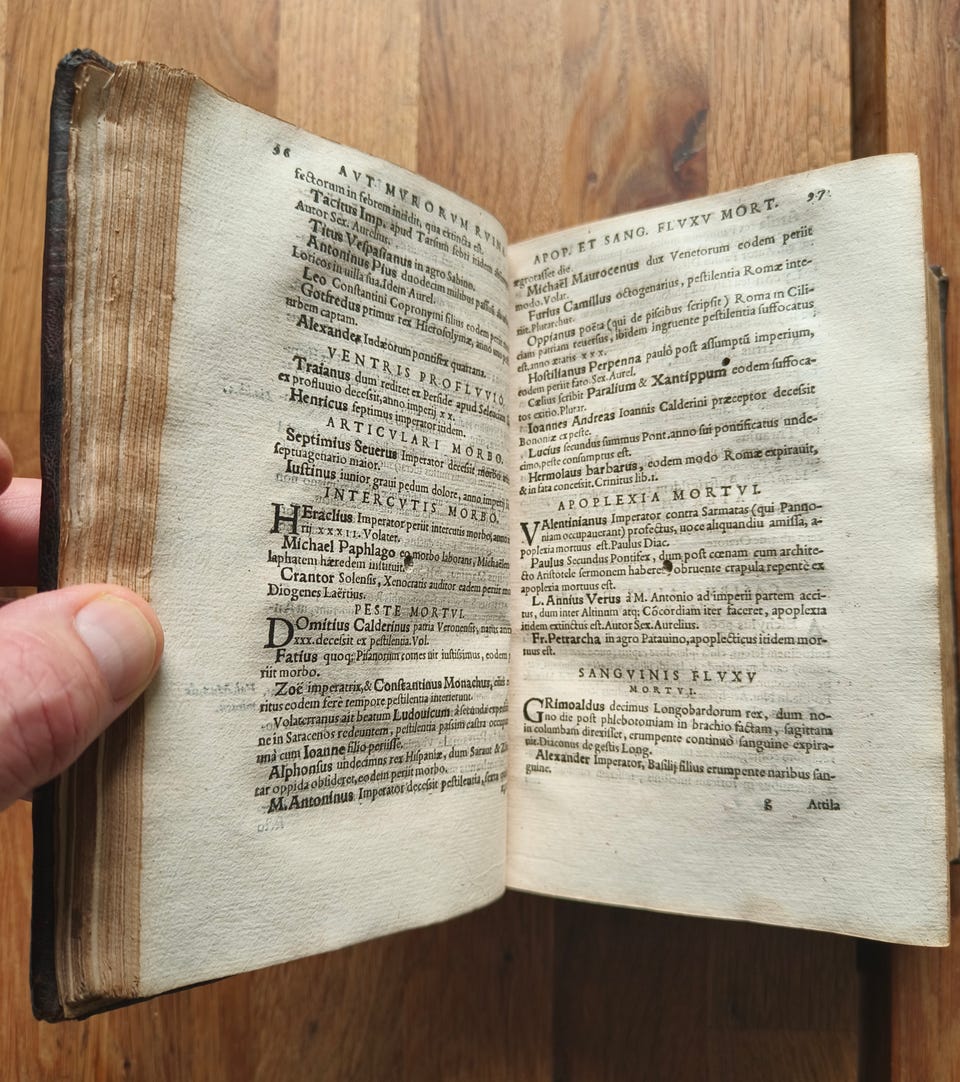 96
AVT MVRORVM RVIN
fectorum in febrem incidit, qua extincta est.
Tacitus Imp. apud Tarsum febri itidem
Autor Sex. Aurelius.
Titus Vespasianus in agro Sabino.
Antoninus Pius duodecim milibus passus
Loricos in uilla sua. Idem Aurel.
Leo Constantini Copronymi filius eodem periit
Gotfredus primus rex Hierosolymæ, anno
urbem captam.
Alexander Iudæorum pontifex quartana.
VENTRIS PROFLVVIO
Traianus dum rediret ex Perside apud Seleuciam
ex profluuio decessit, anno imperij xx.
Henricus septimus imperator itidem.
ARTICVLARI MORBO.
Septimius Seuerus Imperator decessit morbo
septuagenario maior.
Iustinus iunior graui pedum dolore, anno imperij
INTERCVTIS MORBO.
HEraclius Imperator periit intercutis morbo, anno
rij xxxij. Volater.
Michael Paphlago eo morbo laborans, Michaëlem
laphatem hæredem instituit.
Crantor Solensis, Xenocratis auditor eadem periit
Diogenes Laërtius.
PESTE MORTVI.
DOmitius Calderinus patria Veronensis, natus
xxx. decessit ex pestilentia. Vol.
Fatius quoq; Pisanorum comes uir iustissimus, eodem
riit morbo.
Zoë imperatrix, & Constantinus Monachus,
ritus eodem ferè tempore pestilentia interierunt.
Volaterranus ait beatum Ludouicum à secunda
ne in Saracenos redeuntem, pestilentia passim castra
unà cum Ioanne filio periisse.
Alphonsus undecimus rex Hispaniæ, dum Saraut &
tar oppida obsideret, eodem periit morbo.
M. Antoninus Imperator decessit pestilentia, sexta
97
APOP. ET SANG. FLVXV MORT.
ægrotasset die.
Michaël Maurocenus dux Venetorum eodem periit
modo. Volat.
Furius Camillus octogenarius, pestilentia Romæ inte-
riit. Plutarchus.
Oppianus poëta (qui de piscibus scripsit) Roma in Cili-
ciam patriam reuersus, ibidem ingruente pestilentia suffocatus
est, anno ætatis xxx.
Hostilianus Perpenna paulò post assumptū imperium,
eodem periit fato. Sex. Aurel.
Cælius scribit Paralium & Xantippum eodem suffoca-
tos exitio. Plutar.
Ioannes Andreas Ioannis Calderini præceptor decessit
Bononiæ ex peste.
Lucius secundus summus Pont. anno sui pontificatus unde-
cimo, peste consumptus est.
Hermolaus barbarus, eodem modo Romæ expirauit,
& in fata concessit. Crinitus lib. 1.
APOPLEXIA MORTVI.
VAlentinianus Imperator contra Sarmatas (qui Panno-
niam occupauerant) profectus, uoce aliquandiu amissa, a-
poplexia mortuus est. Paulus Diac.
Paulus Secundus Pontifex, dum post cœnam cum archite-
cto Aristotele sermonem haberet, obruente crapula repentè ex
apoplexia mortuus est.
L. Annius Verus à M. Antonio ad imperii partem acci-
tus, dum inter Altinum atq; Cōcordiam iter faceret, apoplexia
itidem extinctus est. Autor Sex. Aurelius.
Fr. Petrarcha in agro Patauino, apoplecticus itidem mor-
tuus est.
SANGVINIS FLVXV
MORTVI.
GRimoaldus decimus Longobardorum rex, dum no-
no die post phlebotomiam in brachio factam, sagittam
in columbam direxisset, erumpente continuò sanguine expira-
uit. Diaconus de gestis Long.
Alexander Imperator, Basilij filius erumpente naribus san-
guine.
g Attila